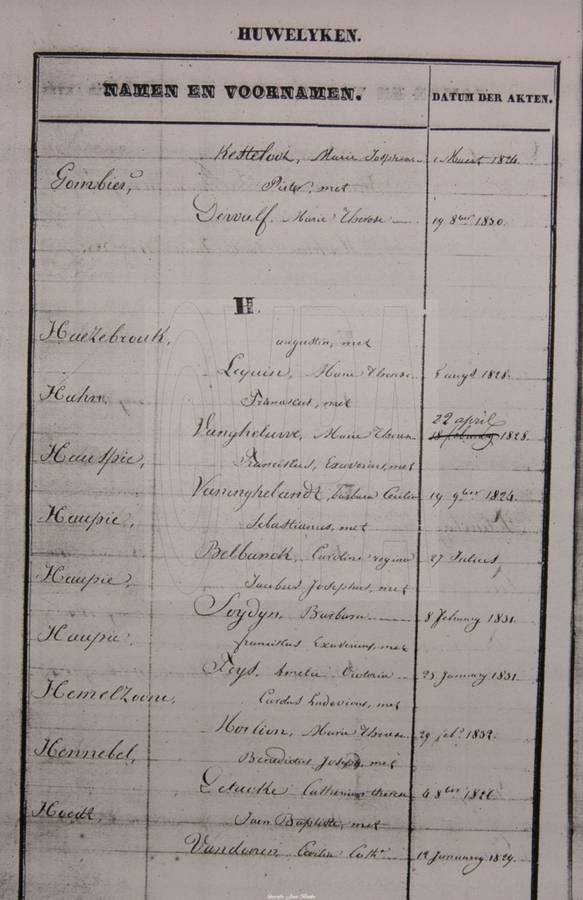 HUWELYKEN.
NAMEN EN VOORNAMEN. DATUM DER AKTEN.
Kesteloot, Marie 1824.
Gombier, Pieter, met
Dewulf, Marie Therese 19 8ber 1830.
H.
Haezebrouk, augustin, met
Lequin, Marie Therese 5 augt 1828.
Hahn, Franciscus, met
22 april
Vangheluwe, Marie Theresa 18 february 1828.
Franciscus, Exaverius, met
Vaninghelandt, Barbara Cecilia 19 9ber 1824.
Haupie, Sebastianus, met
Carolina regina 27 Julius
Haupie, Jacobus Josephus, met
Soydyn, Barbara 8 February 1831.
Haupie, franciscus Exaverius, met
Feys, Amelia Victoria 25 January 1831.
Carolus Ludovicus, met
Morlion, Marie Theresa 29 feb. 1832.
Hennebel, Benedictus, Joseph, met
Catharina theresa 4 8ber
Hoedt, Jean Baptiste, met
Cecilia Cath. 12 January 1829.